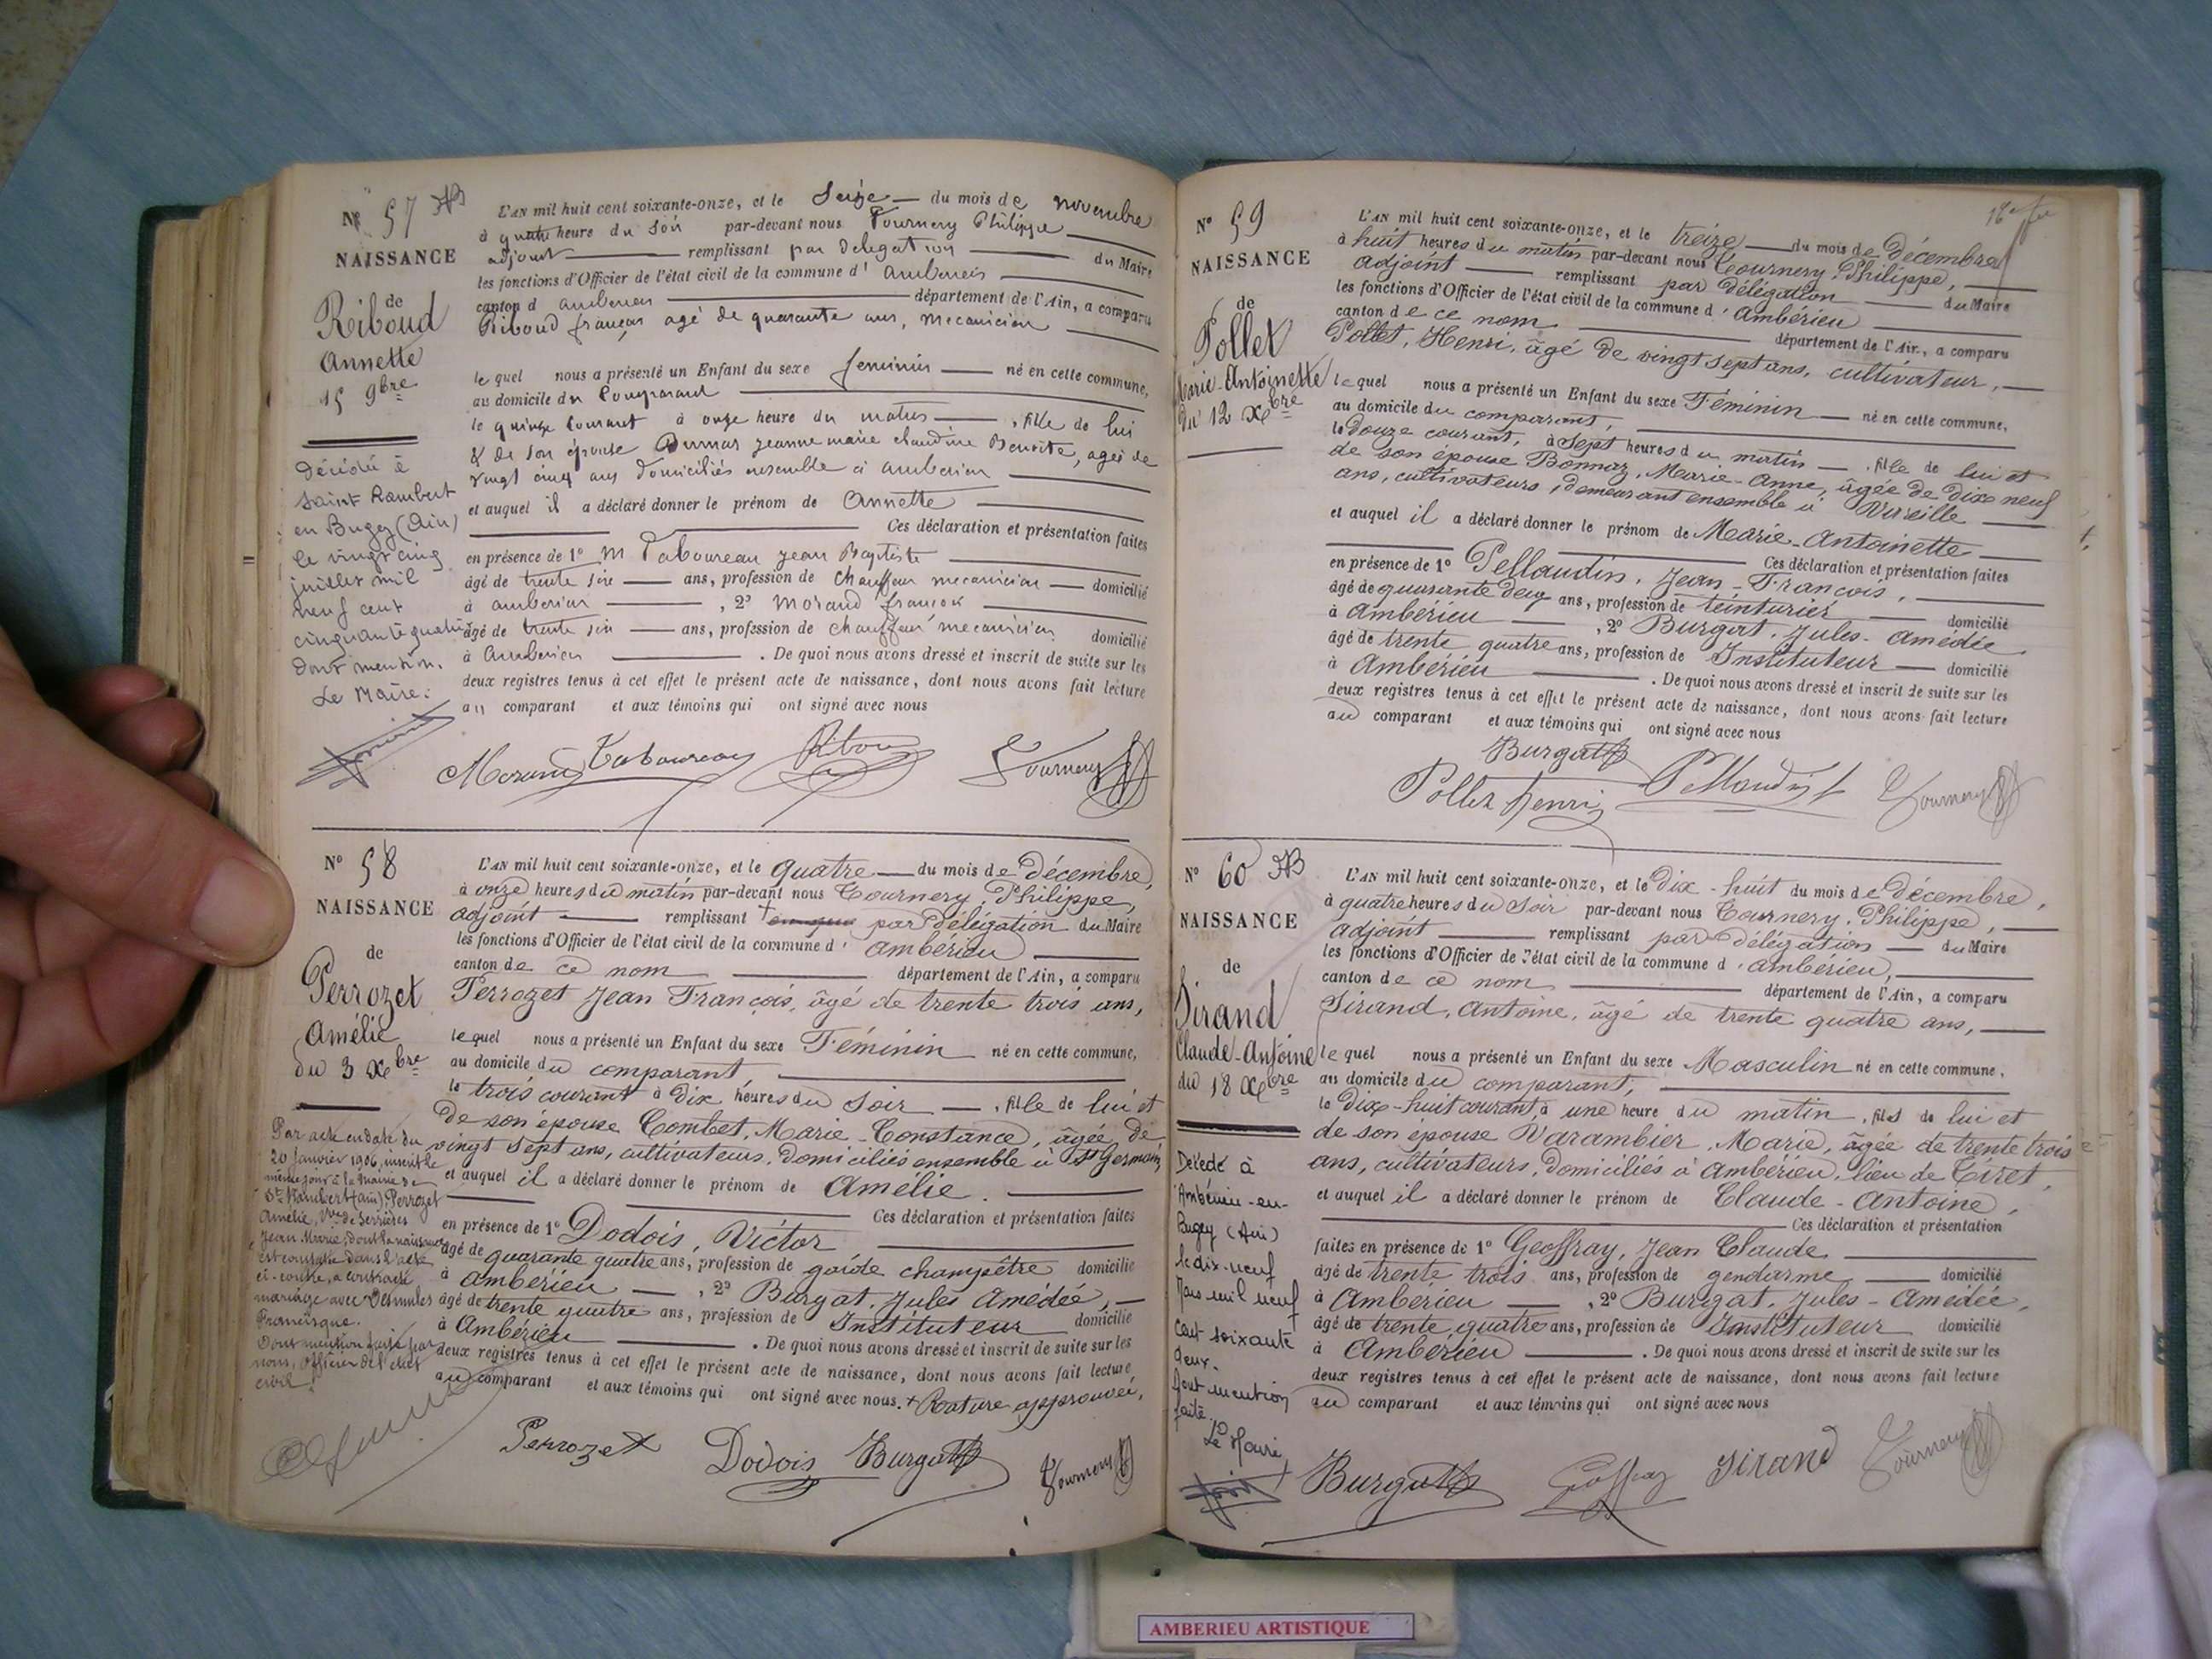 N° 57
NAISSANCE
de
Riboud
Annette
15 9bre
Décédée à
Saint Rambert
en Bugey (Ain)
le vingt cinq
juillet mil
neuf cent
cinquante quatre
dont mention.
Le Maire:
L'AN mil huit cent soixante-onze, et le Seize du mois de novembre
à quatre heure du soir par-devant nous Tournery Philippe
adjoint remplissant par delegation du Maire
les fonctions d'Officier de l'état civil de la commune d'
canton d département de l'Ain, a comparu
Riboud françois agé de quarante ans, mecanicien
lequel nous a présenté un Enfant du sexe feminin né en cette commune,
au domicile du Comparant
le quinze Courant à onze heure du matin, fille de lui
& de son épouse Dumas jeanne marie claudine Benoite, agée de
vingt cinq ans domiciliés ensemble a amberieu
et auquel il a déclaré donner le prénom de Annette
Ces déclaration et présentation faites
en présence de 1° M Taboureau jean Baptiste
âgé de trente six ans, profession de chauffeur mecanicien domicilié
à amberieu, 2° Morand françois
âgé de trente six ans, profession de chauffeur mecanicien domicilié
à Amberieu. De quoi nous avons dressé et inscrit de suite sur les
deux registres tenus à cet effet le présent acte de naissance, dont nous avons fait lecture
au comparant et aux témoins qui ont signé avec nous
Morand Taboureau Riboud Tournery
N° 58
NAISSANCE
de
Perrozet
Amélie
du 3 Xbre
Par acte en date du
20 Janvier 1906, inscrit le
même jour à la mairie de
St Rambert (Ain) Perrozet
Amélie, Vve de Serrières
Jean Marie, dont la naissance
est constatée dans l'acte
ci-contre, a contracté
mariage avec Desmules
Francisque.
Dont mention faite par
nous, Officier de l'état
civil.
L'AN mil huit cent soixante-onze, et le quatre du mois de Décembre,
à onze heures du matin par-devant nous Tournery, Philippe,
adjoint remplissant + par Délégation du Maire
les fonctions d'Officier de l'état civil de la commune d'Ambérieu
canton de ce nom département de l'Ain, a comparu
Perrozet Jean François, âgé de trente trois ans,
lequel nous a présenté un Enfant du sexe Féminin né en cette commune,
au domicile du comparant
le trois courant à dix heures du soir, fille de lui et
de son épouse Combet, Marie-Constance, âgée de
vingt sept ans, cultivateurs, domiciliés ensemble à St Germain,
et auquel il a déclaré donner le prénom de Amélie.
Ces déclaration et présentation faites
en présence de 1° Dodois, Victor
âgé de quarante quatre ans, profession de garde champêtre domicilié
à Ambérieu, 2° Burgat, Jules Amédée,
âgé de trente quatre ans, profession de Instituteur domicilié
à Ambérieu. De quoi nous avons dressé et inscrit de suite sur les
deux registres tenus à cet effet le présent acte de naissance, dont nous avons fait lecture
au comparant et aux témoins qui ont signé avec nous. + Rature approuvée,
Perrozet Dodois Burgat Tournery
N° 59
NAISSANCE
de
Pollet
Marie-Antoinette
du 12 Xbre
L'AN mil huit cent soixante-onze, et le treize du mois de Décembre
à huit heures du matin par-devant nous Tournery, Philippe,
adjoint remplissant par Délégation du Maire
les fonctions d'Officier de l'état civil de la commune d'Ambérieu
canton de ce nom département de l'Ain, a comparu
Pollet, Henri, âgé de vingt sept ans, cultivateur,
lequel nous a présenté un Enfant du sexe Féminin né en cette commune,
au domicile du comparant,
le Douze courant, à sept heures du matin, fille de lui et
de son épouse Bonnaz, Marie-Anne, âgée de dix neuf
ans, cultivateurs, demeurant ensemble à Vareille
et auquel il a déclaré donner le prénom de Marie-Antoinette
Ces déclaration et présentation faites
en présence de 1° Pellaudin, Jean-François,
âgé de quarante deux ans, profession de teinturier domicilié
à Ambérieu, 2° Burgat, Jules-Amédée
âgé de trente quatre ans, profession de Instituteur domicilié
à Ambérieu. De quoi nous avons dressé et inscrit de suite sur les
deux registres tenus à cet effet le présent acte de naissance, dont nous avons fait lecture
au comparant et aux témoins qui ont signé avec nous
Burgat
Pollet henri Pellaudin Tournery
N° 60
NAISSANCE
de
Sirand
Claude-Antoine
du 18 Xbre
Décédé à
Ambérieu-en-
Bugey (Ain)
le dix-neuf
Mars mil neuf
cent soixante
deux.
dont mention
faite.
Le Maire
L'AN mil huit cent soixante-onze, et le Dix-huit du mois de Décembre,
à quatre heures du soir par-devant nous Tournery, Philippe,
adjoint remplissant par Délégation du Maire
les fonctions d'Officier de l'état civil de la commune d'Ambérieu,
canton de ce nom département de l'Ain, a comparu
Sirand, Antoine, âgé de trente quatre ans,
lequel nous a présenté un Enfant du sexe Masculin né en cette commune,
au domicile du comparant,
le Dix-huit courant, à une heure du matin, fils de lui et
de son épouse Varambier, Marie, âgée de trente trois
ans, cultivateurs, domiciliés à Ambérieu, lieu de Tiret,
et auquel il a déclaré donner le prénom de Claude-Antoine,
Ces déclaration et présentation
faites en présence de 1° Geoffray, Jean Claude
âgé de trente trois ans, profession de gendarme domicilié
à Ambérieu, 2° Burgat, Jules-Amédée,
âgé de trente quatre ans, profession de Instituteur domicilié
à Ambérieu. De quoi nous avons dressé et inscrit de suite sur les
deux registres tenus à cet effet le présent acte de naissance, dont nous avons fait lecture
au comparant et aux témoins qui ont signé avec nous
Burgat Geoffray Sirand Tournery
AMBERIEU ARTISTIQUE